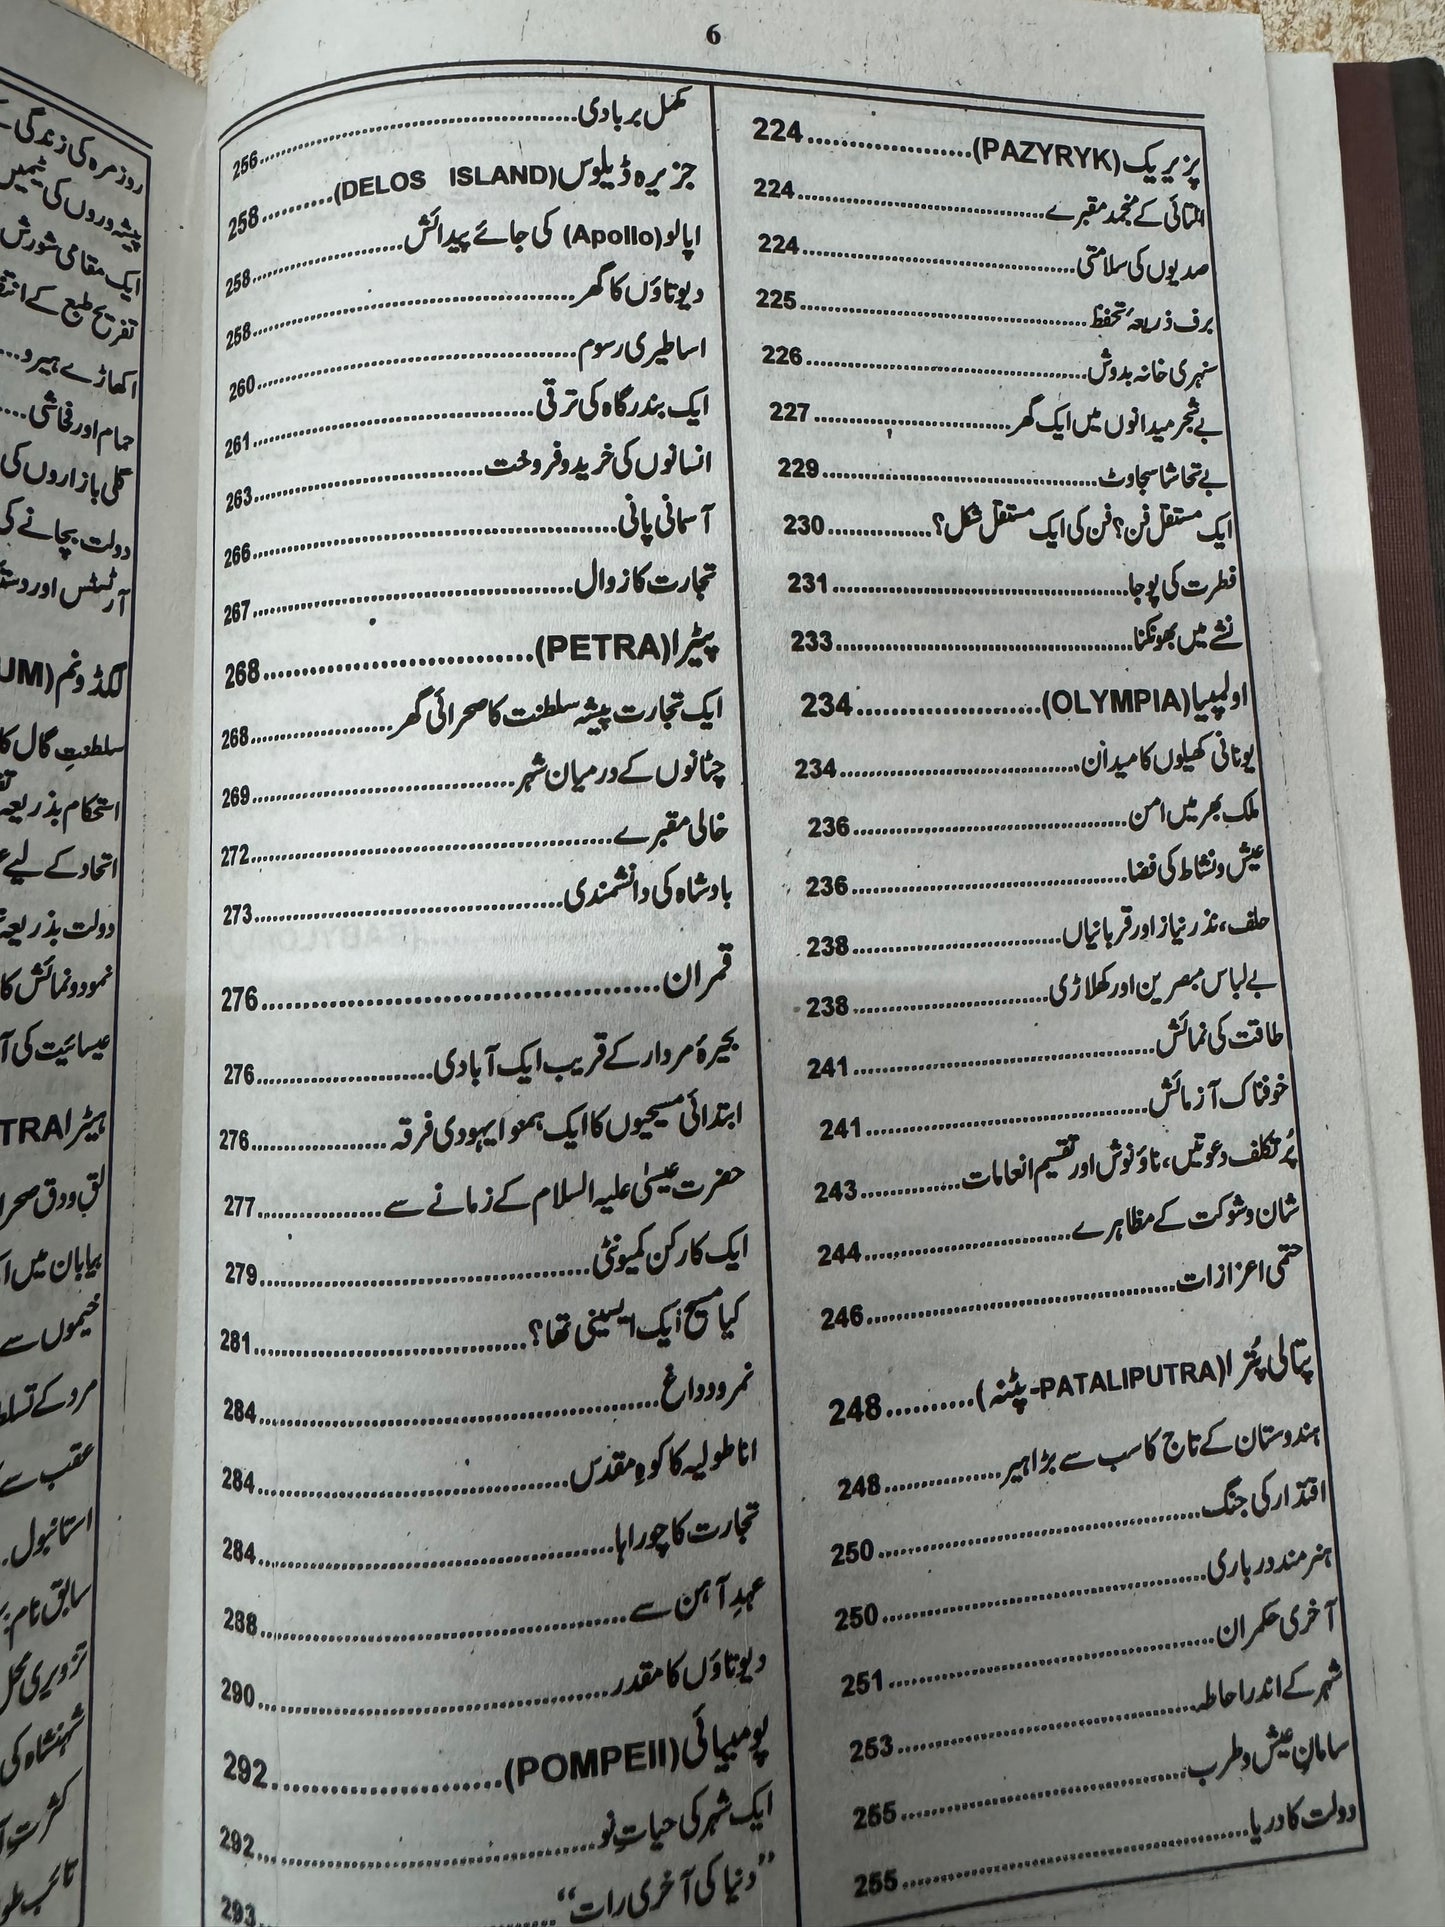 6
پزیریک (PAZYRYK)....................224
التائی کے منجمد مقبرے....................224
صدیوں کی سلامتی....................224
برف ذریعۂ تحفظ....................225
سنہری خانہ بدوش....................226
بے شجر میدانوں میں ایک گھر....................227
بے تحاشا سجاوٹ....................229
ایک مستقل فن؟ فن کی ایک مستقل شکل؟............230
فطرت کی پوجا....................231
نشے میں بھونکنا....................233
اولمپیا (OLYMPIA)....................234
یونانی کھیلوں کا میدان....................234
ملک بھر میں امن....................236
عیش و نشاط کی فضا....................236
حلف، نذر نیاز اور قربانیاں....................238
بے لباس مبصرین اور کھلاڑی....................238
طاقت کی نمائش....................241
خوفناک آزمائش....................241
پُر تکلف دعوتیں، ناؤ نوش اور تقسیم انعامات............243
شان و شوکت کے مظاہرے....................244
حتمی اعزازات....................246
پتالی پُترا (PATALIPUTRA- پٹنہ)..........248
ہندوستان کے تاج کا سب سے بڑا ہیر............248
اقتدار کی جنگ....................250
ہنر مند درباری....................250
آخری حکمران....................251
شہر کے اندر احاطہ....................253
سامانِ عیش و طرب....................255
دولت کا دریا....................255
مکمل بربادی....................256
جزیرہ ڈیلوس (DELOS ISLAND)..........258
اپالو (Apollo) کی جائے پیدائش....................258
دیوتاؤں کا گھر....................258
اساطیری رسوم....................260
ایک بندرگاہ کی ترقی....................261
انسانوں کی خرید و فروخت....................263
آسمانی پانی....................266
تجارت کا زوال....................267
پیٹرا (PETRA)....................268
ایک تجارت پیشہ سلطنت کا صحرائی گھر............268
چٹانوں کے درمیان شہر....................269
خالی مقبرے....................272
بادشاہ کی دانشمندی....................273
قمران....................276
بحیرۂ مردار کے قریب ایک آبادی....................276
ابتدائی مسیحیوں کا ایک ہمنوا یہودی فرقہ............276
حضرت عیسیٰ علیہ السلام کے زمانے سے............277
ایک کارکن کمیونٹی....................279
کیا مسیح ایک ایسینی تھا؟....................281
نمرود داغ....................284
اناطولیہ کا کوہِ مقدس....................284
تجارت کا چوراہا....................284
عہدِ آہن سے....................288
دیوتاؤں کا مقدر....................290
پومپیائی (POMPEII)....................292
ایک شہر کی حیاتِ نو....................292
"دنیا کی آخری رات"....................293
روزمرہ کی زندگی
پیشہ وروں کی ٹیمیں
ایک مقامی شورش
تفریح طبع کے
اکھاڑے ہیرو...
حمام اور فحاشی....
گلی بازاروں کی
دولت بچانے کی
آرٹسٹس اور
لگڈونم (UM
سلطنتِ گال کا
استحکام بذریعہ
اتحاد کے لیے
دولت بذریعہ
نمود و نمائش کا
عیسائیت کی
ہیٹرا TRA
لق و دق صحرا
بیابان میں
خیموں سے
مرد کے تسلط
عقب سے
استانبول..
سابق نام
تزویری محل
شہنشاہ کی
کثرتِ
تائب